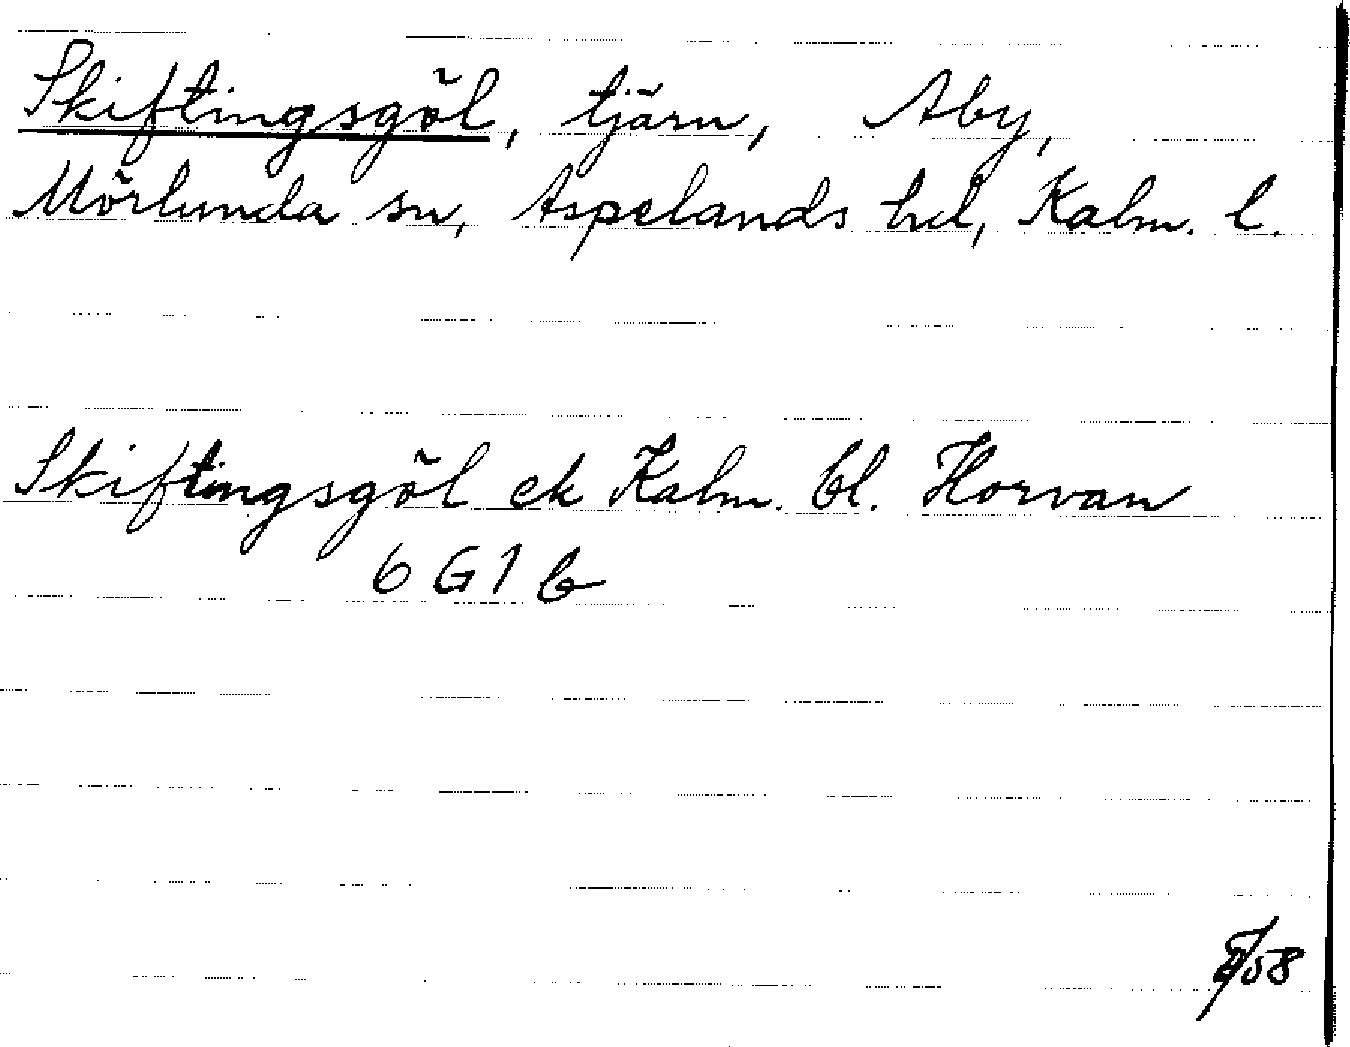 Skiftingsgöl, tjärn, Aby,
Mörlunda sn, Aspelands hd, Kalm. l.
Skiftingsgöl ek Kalm. bl. Horvan
6 G 1 b
/58